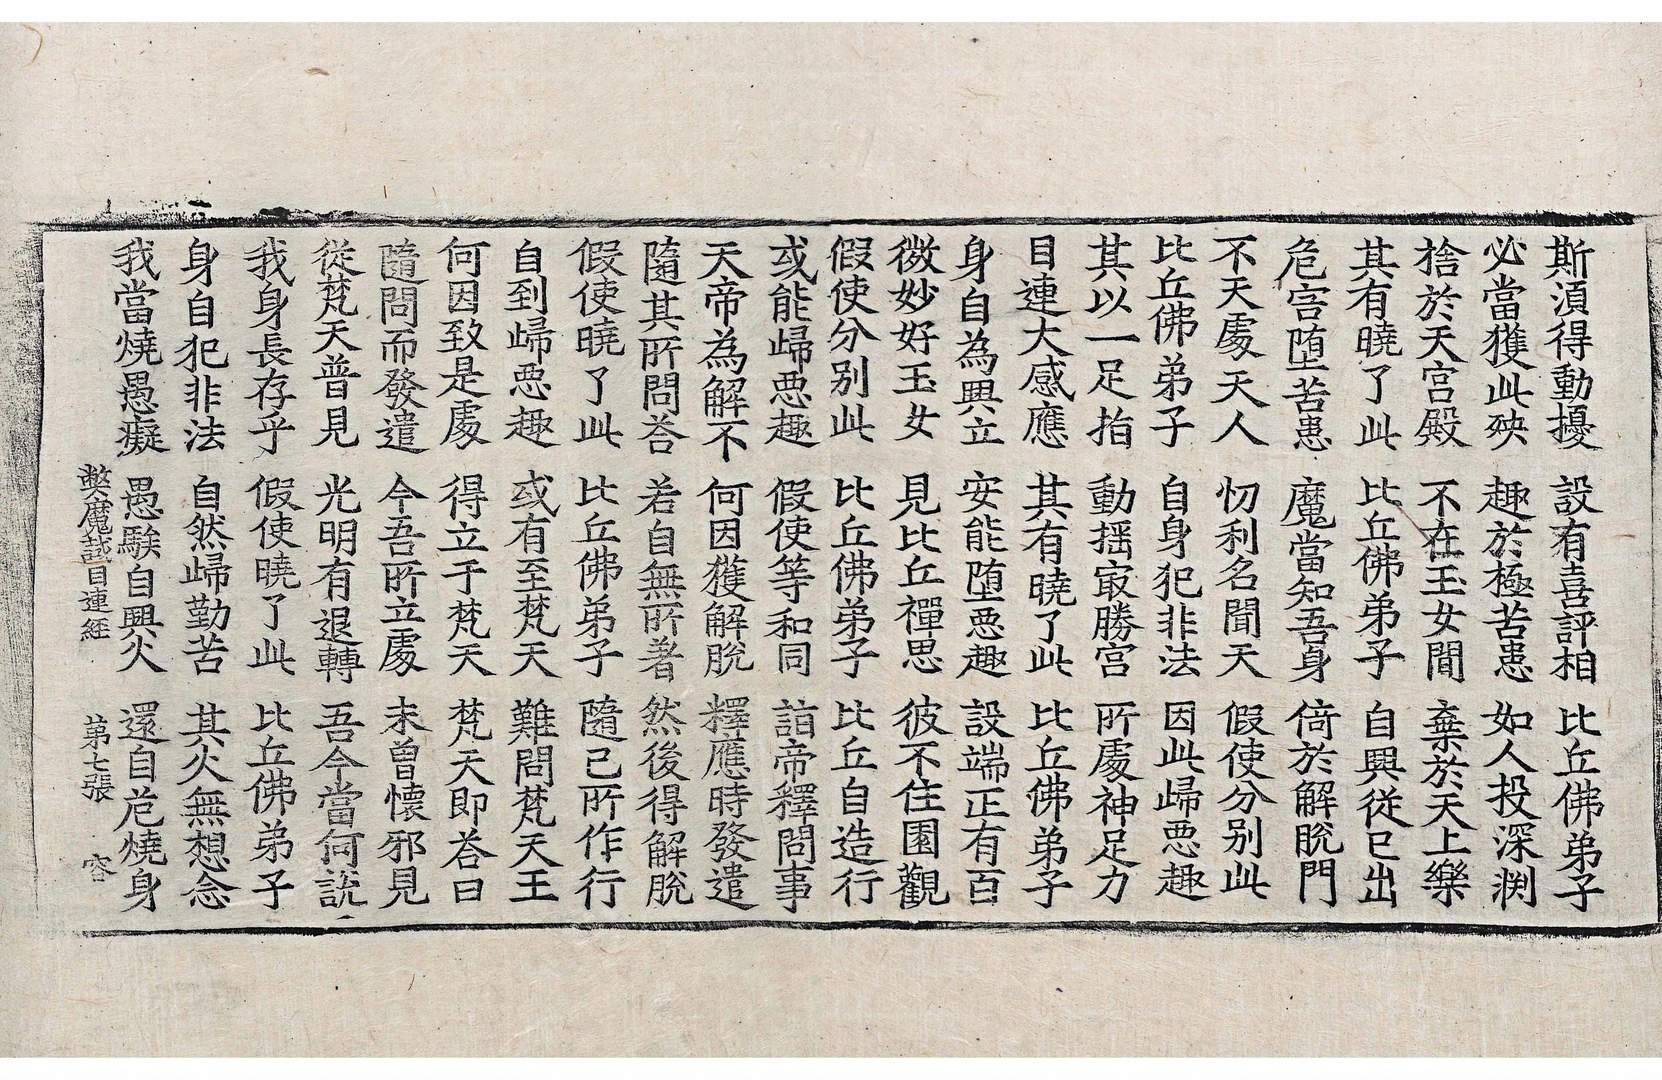 斯湏得動擾　設有喜評相　比丘佛弟子
必當獲此殃　趣於極苦患　如人投深渕
捨於天宫殿　不在玉女閒　棄於天上樂
其有曉了此　比丘佛弟子　自興從已出
危害堕苦患　魔當知吾身　倚於解脫門
不天處天人　忉利名聞天　假使分别此
比丘佛弟子　自身犯非法　因此歸惡趣
其以一足拍　動摇㝡勝宫　所處神足力
目連大感應　其有曉了此　比丘佛弟子
身自為興立　安能堕惡趣　設端正有百
微妙好玉女　見比丘禪思　彼不住園觀
假使分别此　比丘佛弟子　比丘自造行
或能歸惡趣　假使等和同　詣帝釋問事
天帝為解不　何因獲解脫　釋應時發遣
隨其所問荅　若自無所著　然後得解脫
假使曉了此　比丘佛弟子　隨已所作行
自到歸惡趣　或有至梵天　難問梵天王
何因致是處　得立于梵天　梵天即荅曰
隨問而發遣　今吾所立處　未曾懷邪見
從梵天普見　光明有退轉　吾今當何說
我身長存乎　假使曉了此　比丘佛弟子
身自犯非法　自然歸勤苦　其火無想念
我當燒愚癡　愚騃自興火　還自危燒身
弊魔試目連經　第七張　容